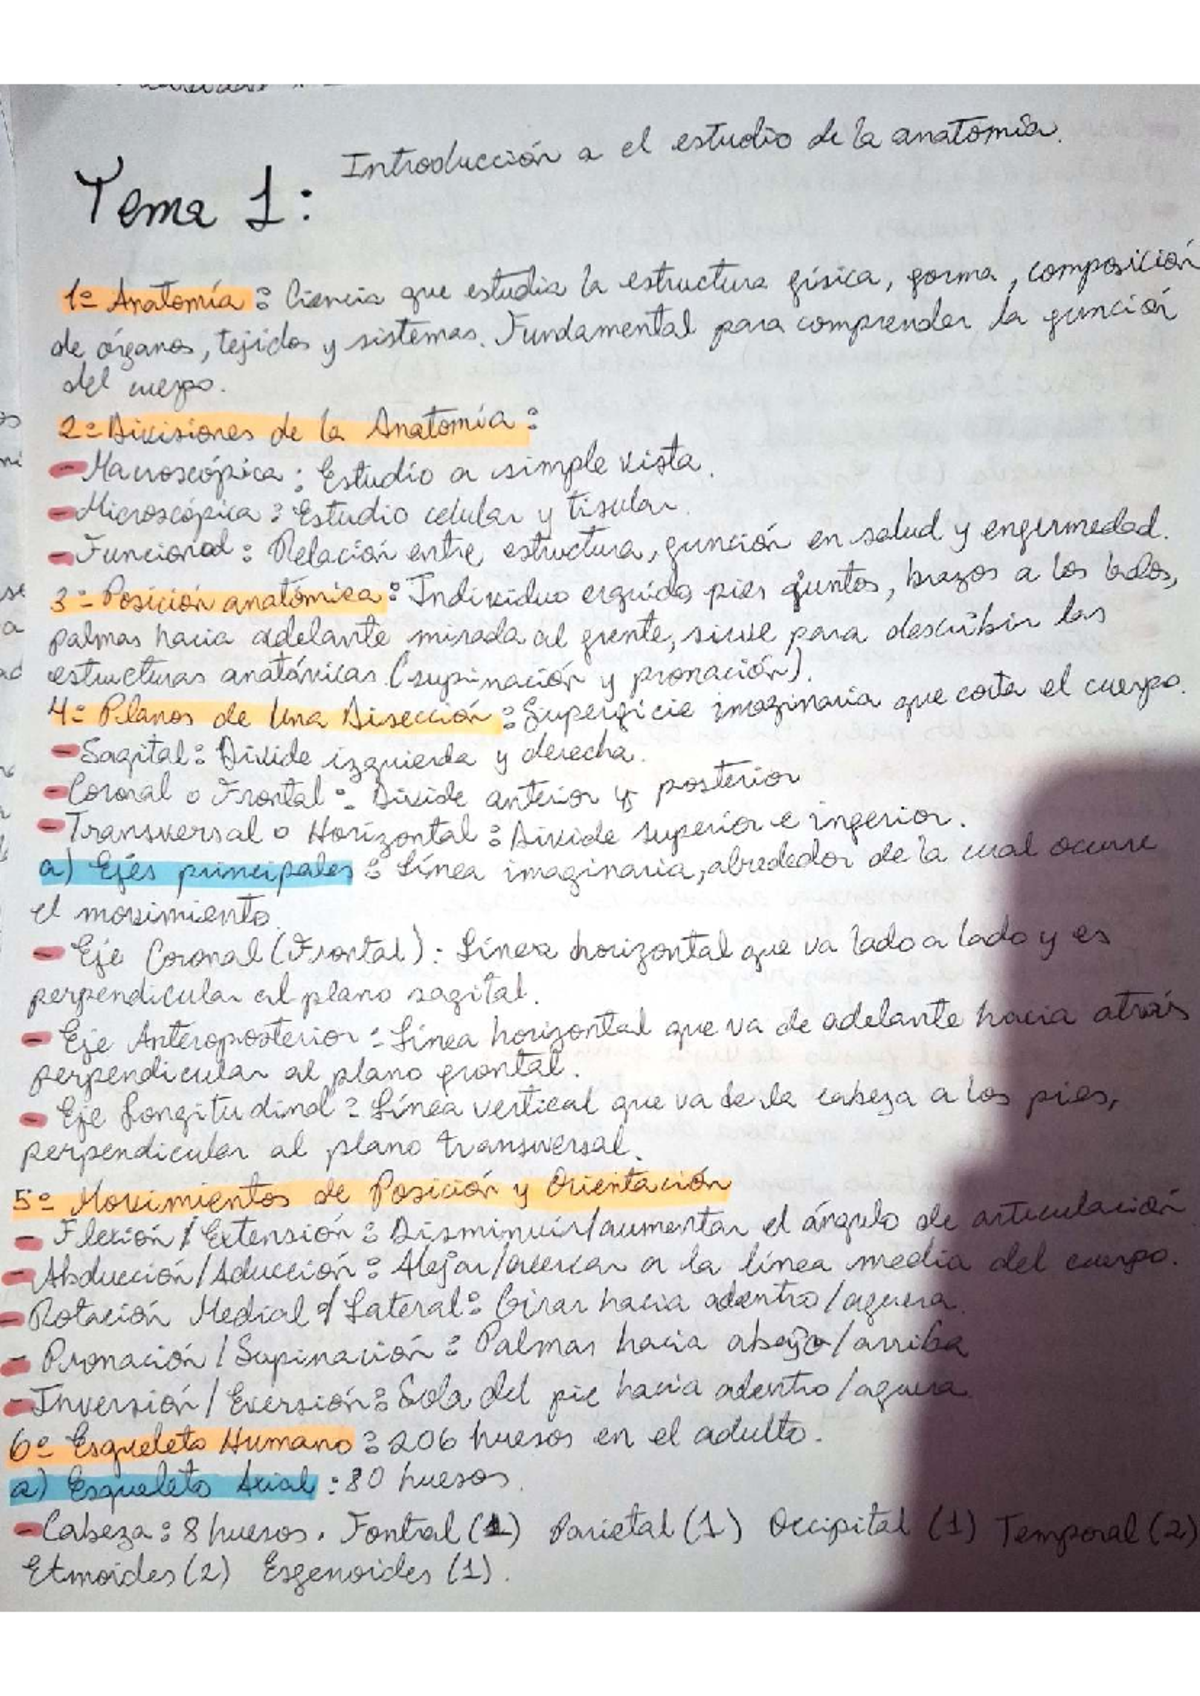 Tema 1: Introducción a el estudio de la anatomía.
1º Anatomía: Ciencia que estudia la estructura física, forma, composición
de órganos, tejidos y sistemas. Fundamental para comprender la función
del cuerpo.
2º Divisiones de la Anatomía:
- Macroscópica: Estudio a simple vista.
- Microscópica: Estudio celular y tisular.
- Funcional: Relación entre estructura, función en salud y enfermedad.
3º Posición anatómica: Individuo erguido, pies juntos, brazos a los lados,
palmas hacia adelante mirada al frente, sirve para describir las
estructuras anatómicas (supinación y pronación).
4º Planos de una Disección: Superficie imaginaria que corta el cuerpo.
- Sagital: Divide izquierda y derecha.
- Coronal o Frontal: Divide anterior y posterior
- Transversal o Horizontal: Divide superior e inferior.
a) Ejés principales: Línea imaginaria, alrededor de la cual ocurre
el movimiento.
- Eje Coronal (Frontal): Línea horizontal que va lado a lado y es
perpendicular al plano sagital.
- Eje Anteroposterior: Línea horizontal que va de adelante hacia atrás
perpendicular al plano frontal.
- Eje Longitudinal: Línea vertical que va de la cabeza a los pies,
perpendicular al plano transversal.
5º Movimientos de Posición y Orientación
- Flexión / Extensión: Disminuir/aumentar el ángulo de articulación
- Abducción/Aducción: Alejar/acercar a la línea media del cuerpo.
- Rotación Medial / Lateral: Girar hacia adentro/afuera.
- Pronación / Supinación: Palmas hacia abajo/arriba
- Inversión / Eversión: Sola del pie hacia adentro/afuera
6º Esqueleto Humano: 206 huesos en el adulto.
a) Esqueleto Axial: 80 huesos.
- Cabeza: 8 huesos. Fontral (1) Parietal (1) Occipital (1) Temporal (2)
Etmoides (2) Esfenoides (1).